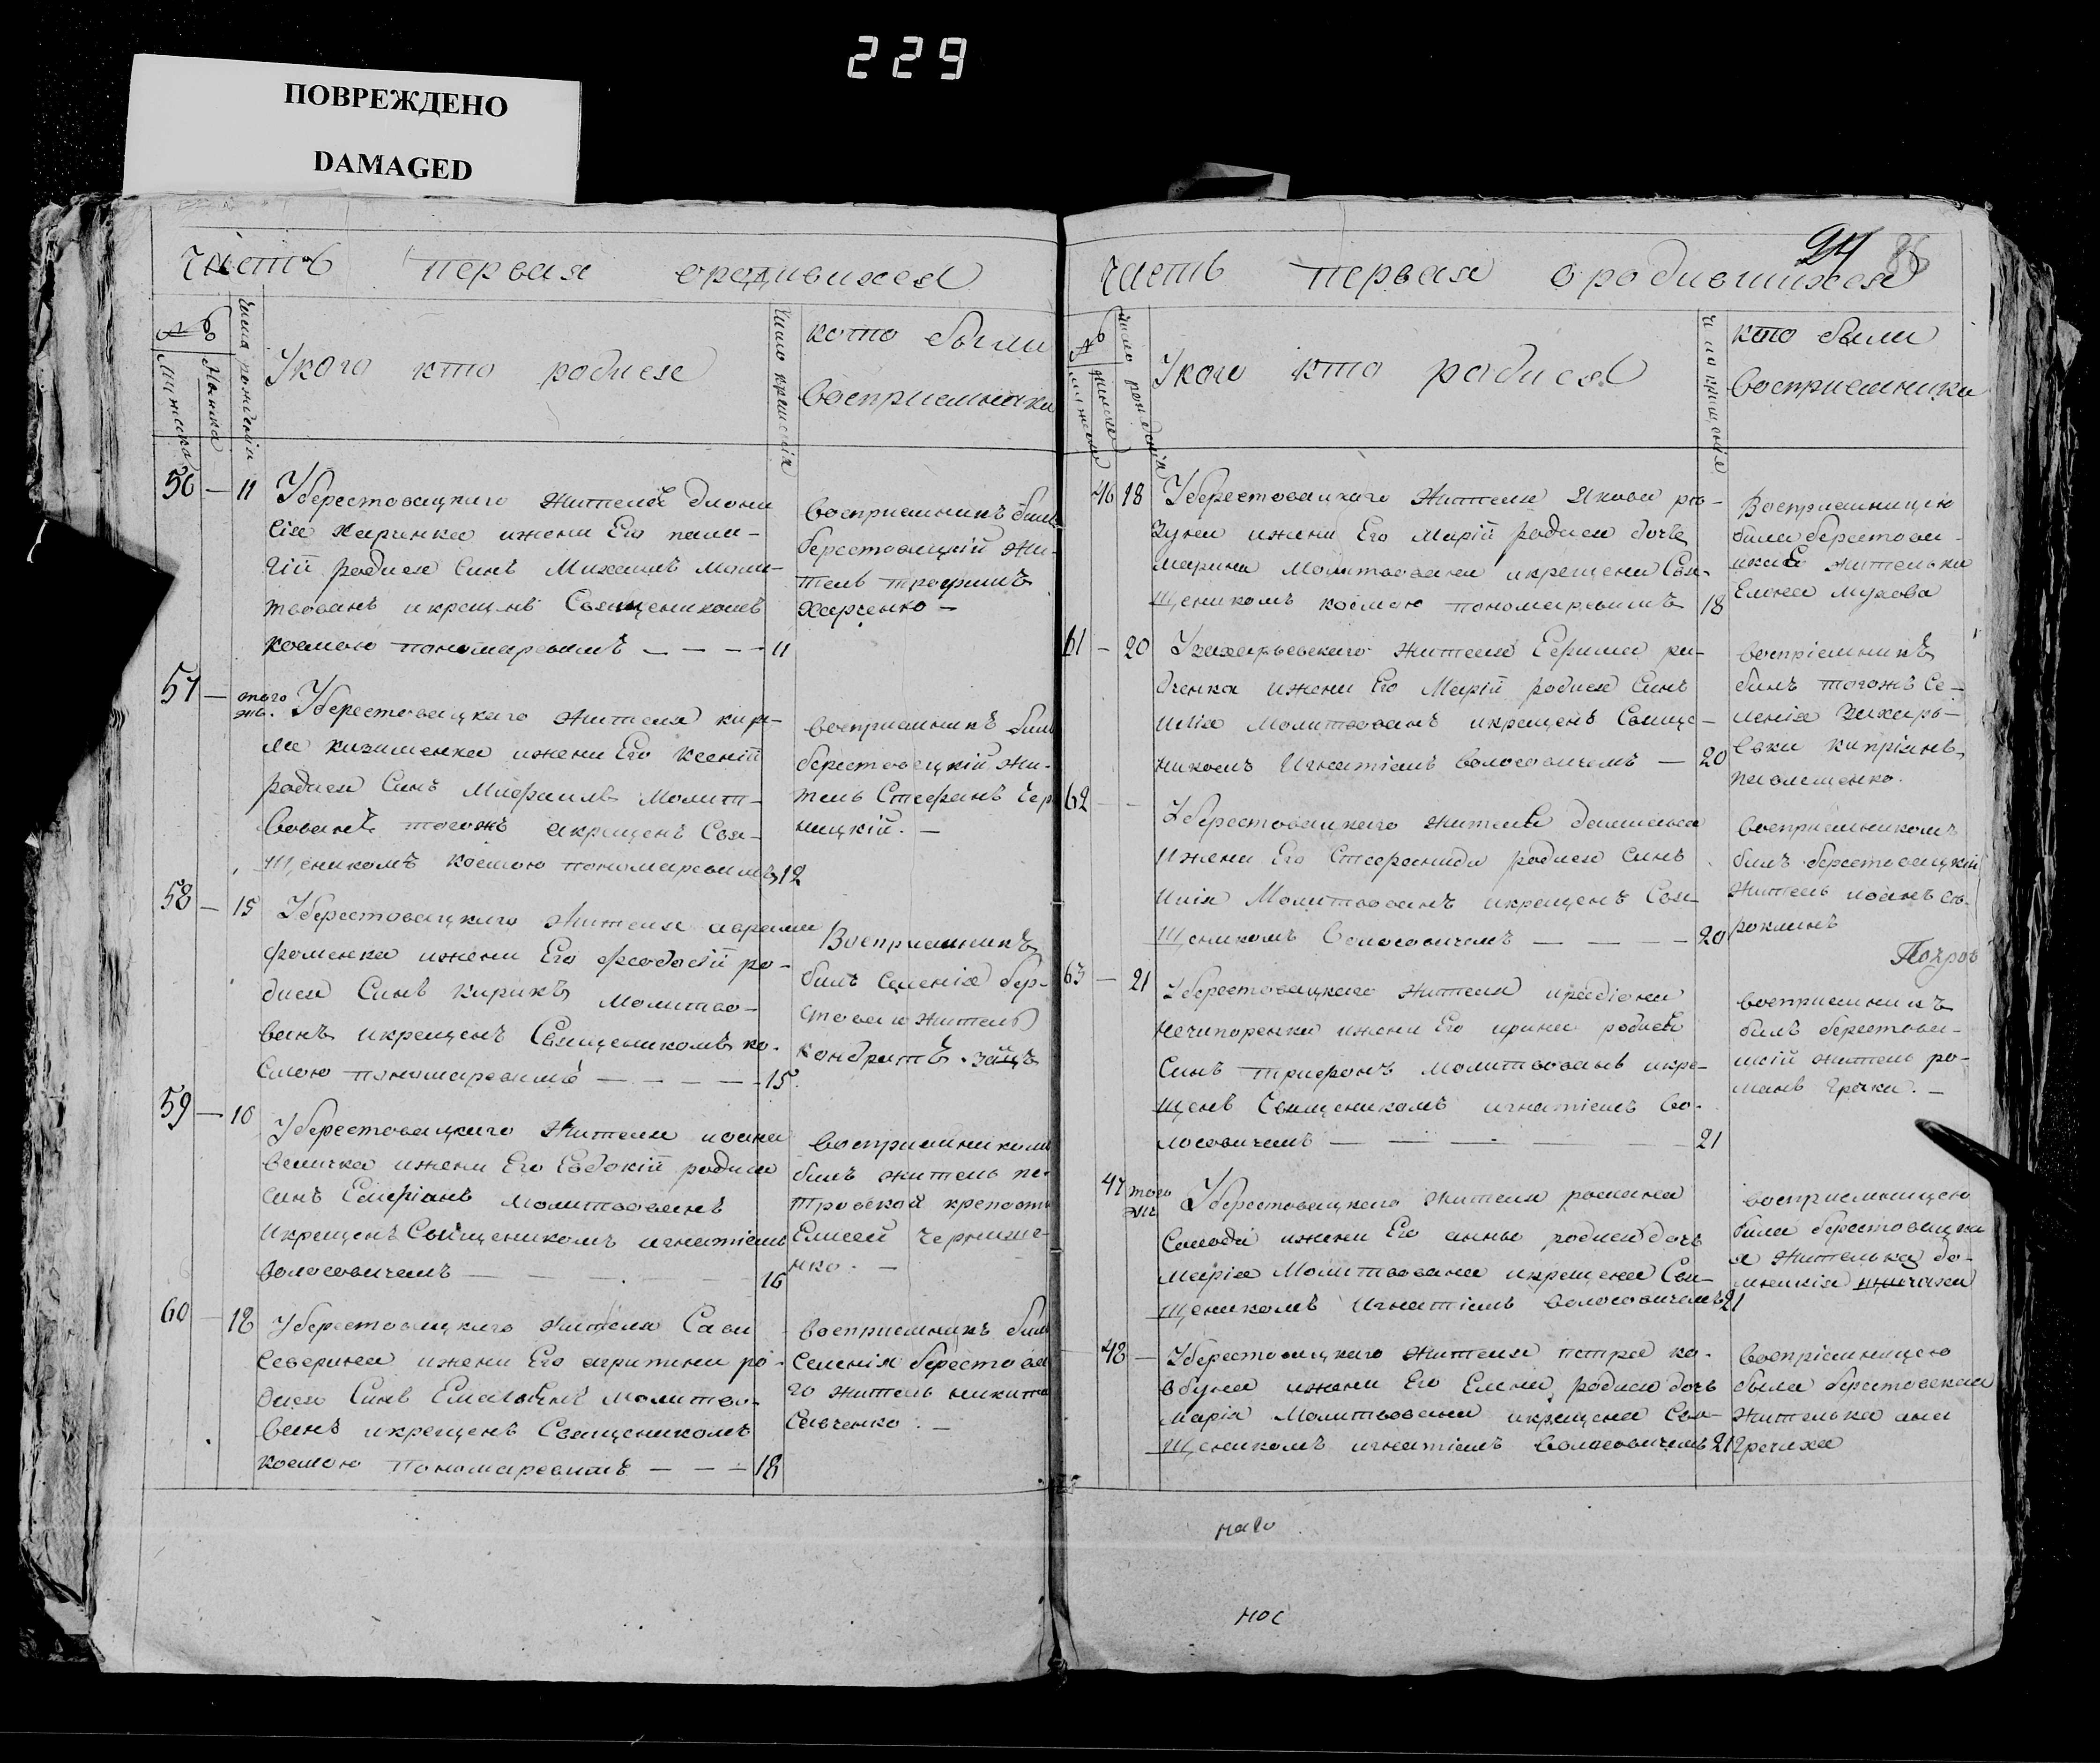 229
ПОВРЕЖДЕНО
DAMAGED
Часть первая ородившихся
№
Числа рождения
У кого кто родися
Число крещения
кто были
восприемники
56 — 11 У берестовацкаго жителя диони
сія харченка ижени Его пела-
гіи родися синъ Михаилъ моли-
твованъ икрещенъ Священикомъ
космою пономаревимъ — — — — 11
Восприемникъ билъ
берестовацкій жи-
тель трофимъ
Харченко —
57 — того
жъ. У берестовацкаго жителя кири-
ла ижени Его Ксеніи
родися Синъ Молит-
вованъ тогожъ икрещенъ Свя-
щеникомъ космою пономаревимъ 12
восприемникъ билъ
берестовецкій жи-
тель Стефанъ Чер
ницкій. —
58 — 15 У берестовацкаго жителя аврама
фоменка ижени Его феодосіи ро-
дися Синъ Кирикъ молитво-
ванъ икрещенъ Священикомъ ко-
смою пономаревимъ — — — — 15.
Восприемникъ
билъ Селенія бер-
стова жителъ
кондратъ. заецъ
59 — 16 У берестовацкаго жителя иоана
величка ижени Его Евдокіи родися
синъ молитвованъ
икрещенъ Священикомъ игнатіемъ
волосовичемъ — — — 16
восприемникомъ
билъ житель пе-
тровской крепости
Елисей
нко. —
60 — 18 У берестовацкаго жителя Сави
Северина ижени Его агрипини ро-
дися Синъ молитво-
ванъ икрещенъ Священикомъ
космою пономаревимъ — — — 18
восприемникъ билъ
Селенія берестова
го житель никита
Савченко. —
24 86
часть первая ородившихся
№
число рождения
У кого кто родися
числа крещенія
кто были
восприемники
46 18 У берестовацкаго жителя Якова
ижени Его Маріи родися дочь
марина молитвована икрещена Свя-
щеникомъ космою пономаревимъ 18
Восприемницею
била берестова-
цкая жителька
Елена мухова
61 — 20 У захарьевскаго жителя Ефима ра-
дченка ижени Его Маріи родися Синъ
илія молитвованъ икрещенъ Свяще-
никомъ Игнатіемъ волосовичемъ — 20
воспріемникъ
билъ тогожъ Се-
ленія Захарь-
евки кипріанъ
62 — — У берестовацкаго жителя
ижени Его Стефаниди родися синъ
илія молитвованъ икрещенъ Свя-
щеникомъ Волосовичемъ — — — 20
восприемникомъ
билъ берестовацкій
житель иоанъ со-
рокинъ
Покров
63 — 21 У берестовацкаго жителя иродіона
нечипоренка ижени Его ирини родися
Синъ трифонъ молитвованъ икре-
щенъ Священикомъ игнатіемъ во-
лосовичемъ — — — — 21
восприемникъ
билъ берестова-
цкій житель ро-
манъ Грачка. —
47 того
жъ У берестовацкаго жителя романа
ижени Его анны родися дочь
марія молитвована икрещена Свя-
щеникомъ Игнатіемъ волосовичемъ 21
восприемницею
била берестовацка
я жителька до-
мникія
48 — У берестовацкаго жителя петра ко-
вбуна ижени Его Елени родися дочь
марія молитвована икрещена Свя-
щеникомъ игнатіемъ волосовичемъ 21
воспріемницею
была берестовская
жителька ана
гречиха
мало
нос